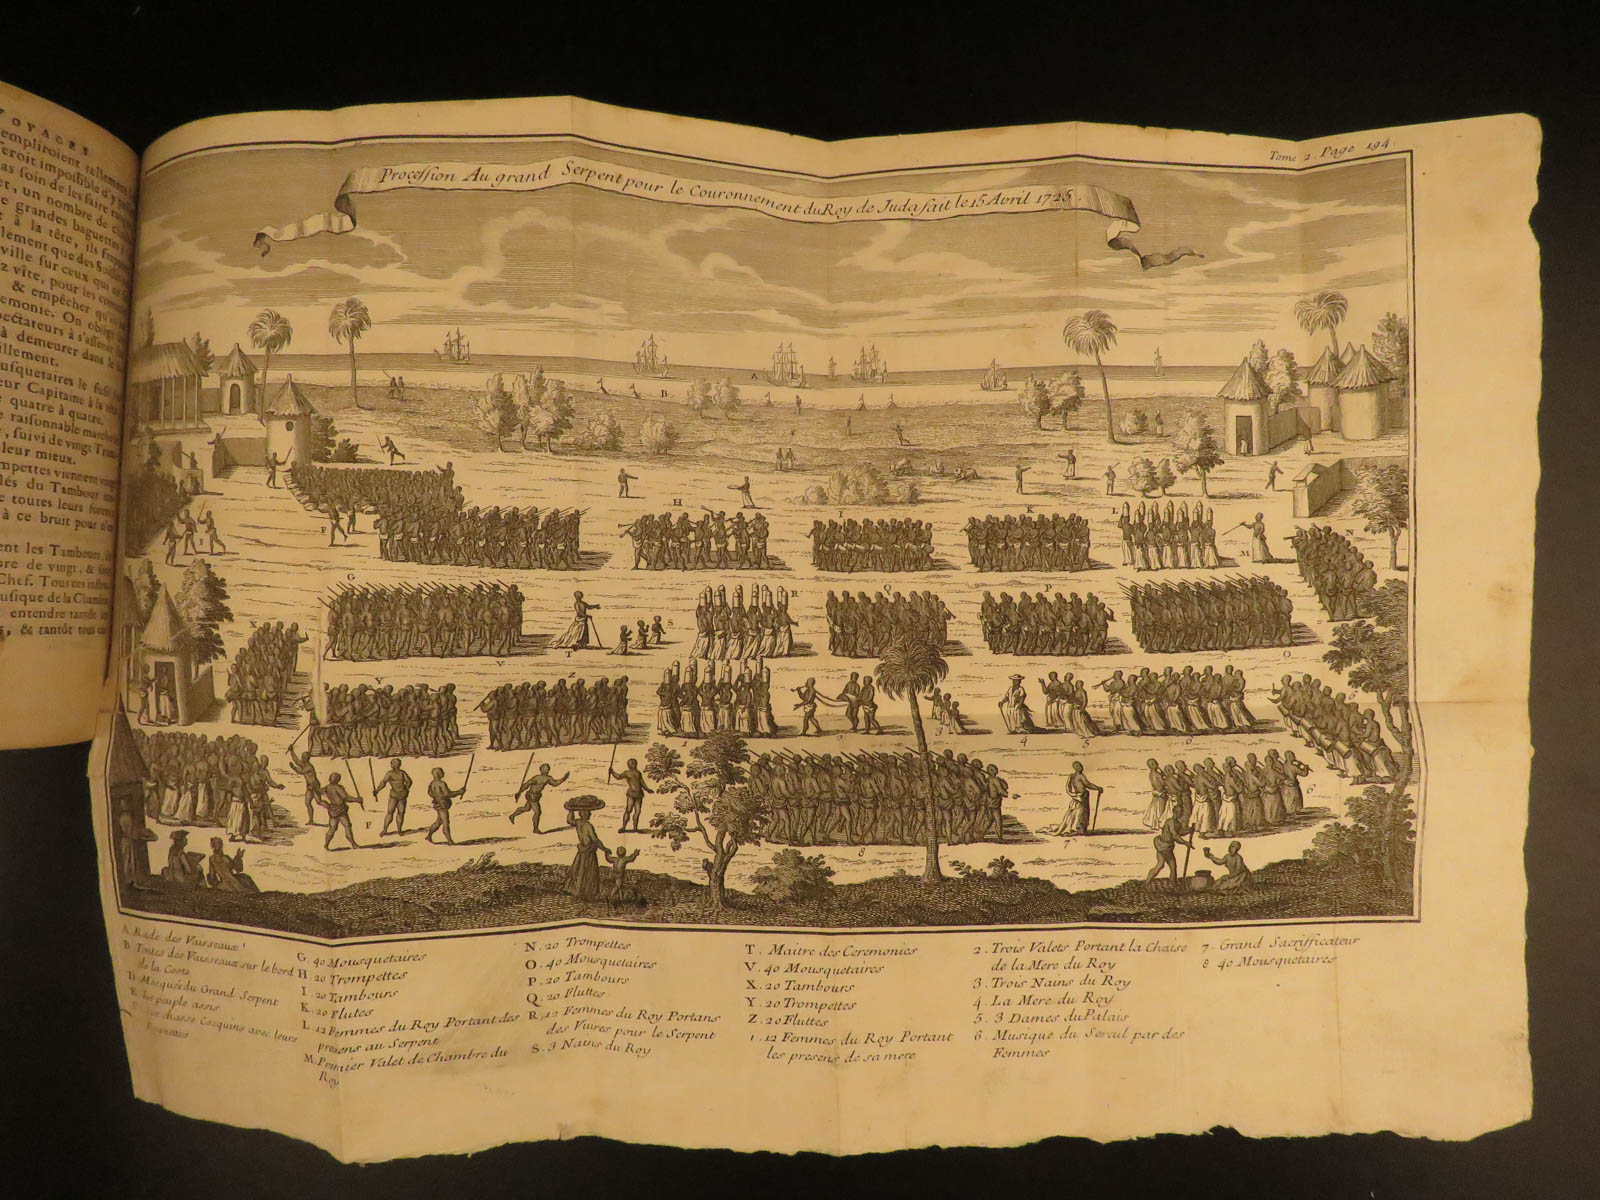 VOYAGES
empliroient tellement
seroit impossible d'y
as soin de les faire
et, un nombre de
e grandes baguettes
t à la tête, ils frappent
llement que des Suisses
ville sur ceux qui ne
z vîte, pour les
& empêcher qu'on
émonie. On oblige
pectateurs à s'asseoir
à demeurer dans le
illement.
usquetaires le fusil
eur Capitaine à la tête
e quatre à quatre.
e raisonnable marchent
, suivi de vingt
leur mieux.
mpettes viennent vingt
lés du Tambour
e toutes leurs forces
à ce bruit pour
ent les Tambours,
bre de vingt, &
Chef. Tous ces
usique de la Chambre
entendre tantôt
, & tantôt tous
Tome 2. Page 194.
Procession Au grand Serpent pour le Couronnement du Roy de Juda fait le 15 Avril 1725.
A
B
H
I
K
L
M
N
I
G
Q
P
R
S
T
V
O
X
Y
Z
1
2
3
4
5
6
6
F
8
7
6
A. Rade des Vaisseaux
B. Tentes des Vaisseaux sur le bord
de la Coste
D. Mosquée du Grand Serpent
E. Le peuple assis
F. chasse Coquins avec leurs
Baguettes
G. 40 Mousquetaires
H. 20 Trompettes
I. 20 Tambours
K. 20 Flutes
L. 12 Femmes du Roy Portant des
presens au Serpent
M. Premier Valet de Chambre du
Roy
N. 20 Trompettes
O. 40 Mousquetaires
P. 20 Tambours
Q. 20 Fluttes
R. 12 Femmes du Roy Portans
des Vivres pour le Serpent
S. 3 Nains du Roy
T. Maitre des Ceremonies
V. 40 Mousquetaires
X. 20 Tambours
Y. 20 Trompettes
Z. 20 Fluttes
1. 12 Femmes du Roy Portant
les presens de sa mere
2. Trois Valets Portant la Chaise
de la Mere du Roy
3. Trois Nains du Roy
4. La Mere du Roy
5. 3 Dames du Palais
6. Musique du Serail par des
Femmes
7. Grand Sacrifficateur
8. 40 Mousquetaires